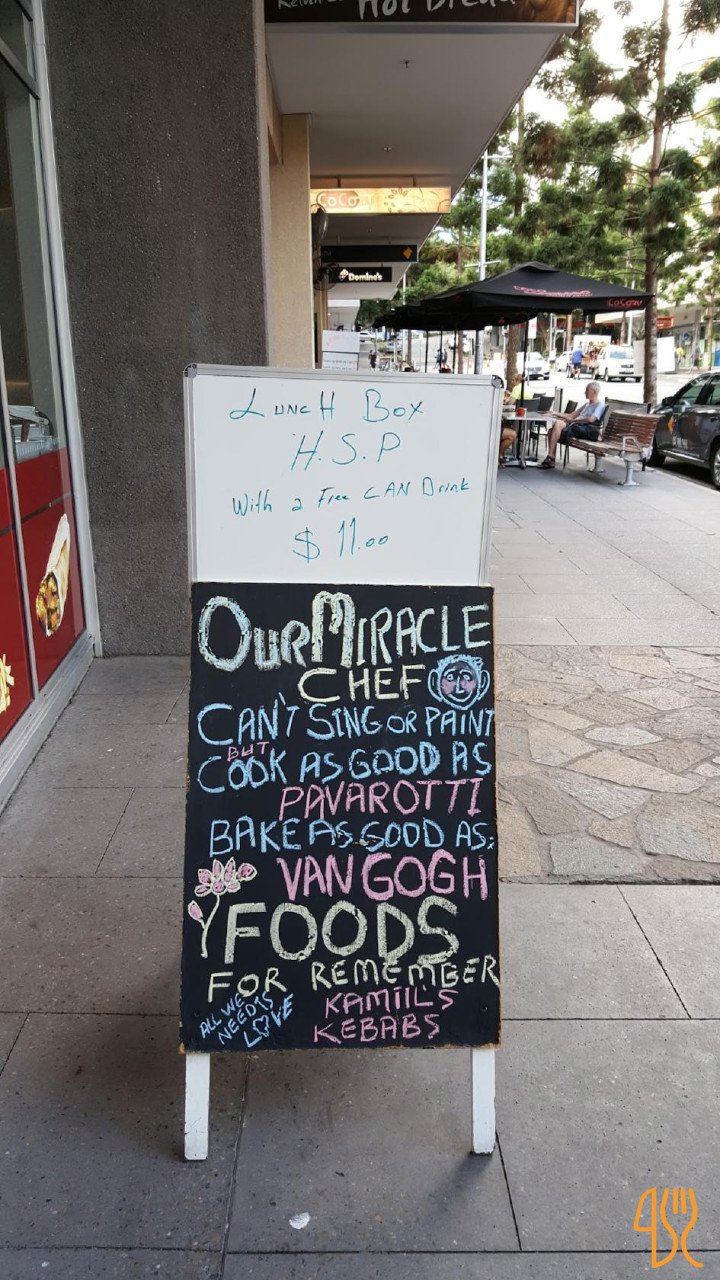 Hot Bread
CoCo's
Domino's
CoCo's
Lunch Box
H.S.P
With a Free CAN Drink
$11.00
OUR MIRACLE
CHEF
CAN'T SING OR PAINT
BUT
COOK AS GOOD AS
PAVAROTTI
BAKE AS GOOD AS:
VAN GOGH
FOODS
FOR REMEMBER
KAMIILS
KEBABS
ALL WE
NEED IS
LOVE